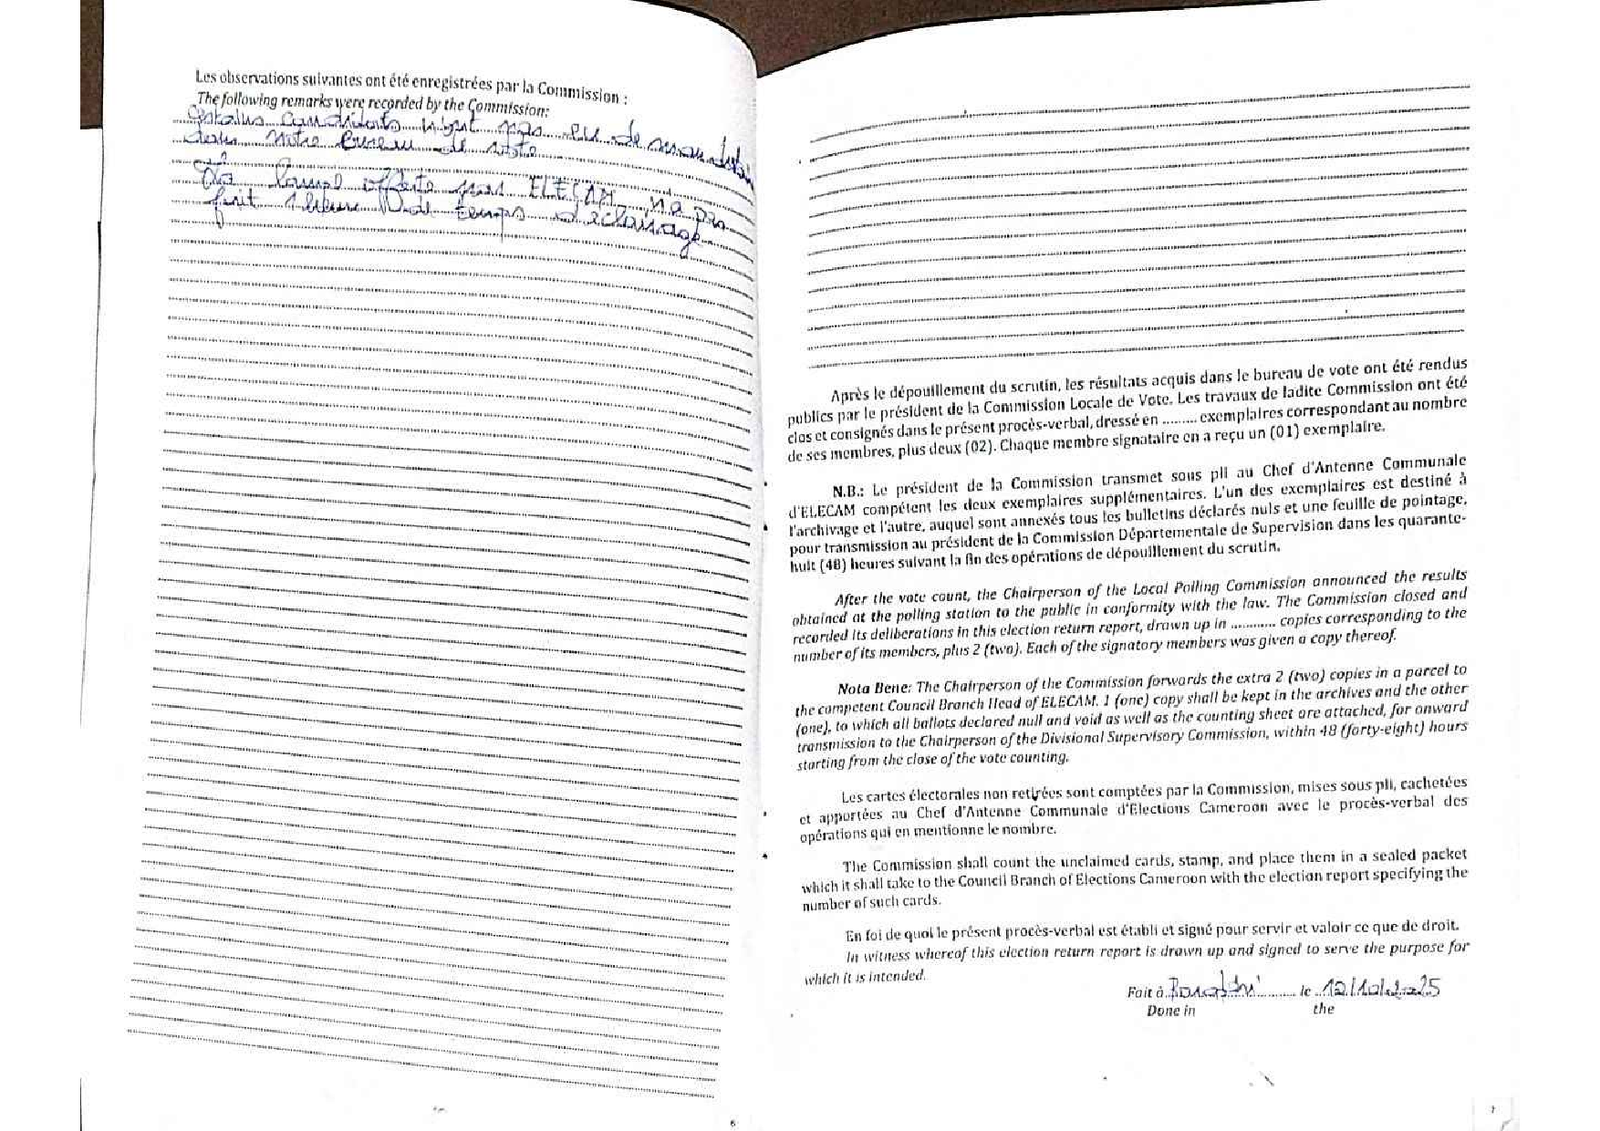 Les observations suivantes ont été enregistrées par la Commission :
The following remarks were recorded by the Commission:
Certains candidats n'ont pas eu de
dans notre Bureau de vote
La lampe offerte par ELECAM n'a pas
fait 1 heure de temps d'éclairage
6
Après le dépouillement du scrutin, les résultats acquis dans le bureau de vote ont été rendus
publics par le président de la Commission Locale de Vote. Les travaux de ladite Commission ont été
clos et consignés dans le présent procès-verbal, dressé en ......... exemplaires correspondant au nombre
de ses membres, plus deux (02). Chaque membre signataire en a reçu un (01) exemplaire.
N.B.: Le président de la Commission transmet sous pli au Chef d'Antenne Communale
d'ELECAM compétent les deux exemplaires supplémentaires. L'un des exemplaires est destiné à
l'archivage et l'autre, auquel sont annexés tous les bulletins déclarés nuls et une feuille de pointage,
pour transmission au président de la Commission Départementale de Supervision dans les quarante-
huit (48) heures suivant la fin des opérations de dépouillement du scrutin.
After the vote count, the Chairperson of the Local Polling Commission announced the results
obtained at the polling station to the public in conformity with the law. The Commission closed and
recorded its deliberations in this election return report, drawn up in ........... copies corresponding to the
number of its members, plus 2 (two). Each of the signatory members was given a copy thereof.
Nota Bene: The Chairperson of the Commission forwards the extra 2 (two) copies in a parcel to
the competent Council Branch Head of ELECAM. 1 (one) copy shall be kept in the archives and the other
(one), to which all ballots declared null and void as well as the counting sheet are attached, for onward
transmission to the Chairperson of the Divisional Supervisory Commission, within 48 (forty-eight) hours
starting from the close of the vote counting.
Les cartes électorales non retirées sont comptées par la Commission, mises sous pli, cachetées
et apportées au Chef d'Antenne Communale d'Elections Cameroon avec le procès-verbal des
opérations qui en mentionne le nombre.
The Commission shall count the unclaimed cards, stamp, and place them in a sealed packet
which it shall take to the Council Branch of Elections Cameroon with the election report specifying the
number of such cards.
En foi de quoi le présent procès-verbal est établi et signé pour servir et valoir ce que de droit.
In witness whereof this election return report is drawn up and signed to serve the purpose for
which it is intended.
Fait à .......... le 12/10/2025
Done in the
7